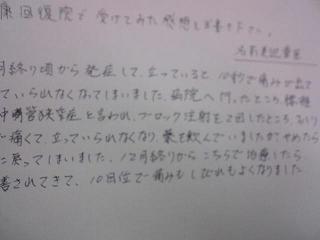 康回復院で受けてみた感想を書き下さい。
月終り頃から発症して、立っていると10秒で痛みが出て
ていられなくなってしまいました。病院へ行ったところ、脊椎
中嚊管狭窄症と言われ、ブロック注射を2回したところ、
で痛くて、立っていられなくなり、薬を飲んでいましたがやめたら
に戻ってしまいました。12月終りからこちらで治療したら
善されてきて、10回位で痛みもしびれもよくなりました